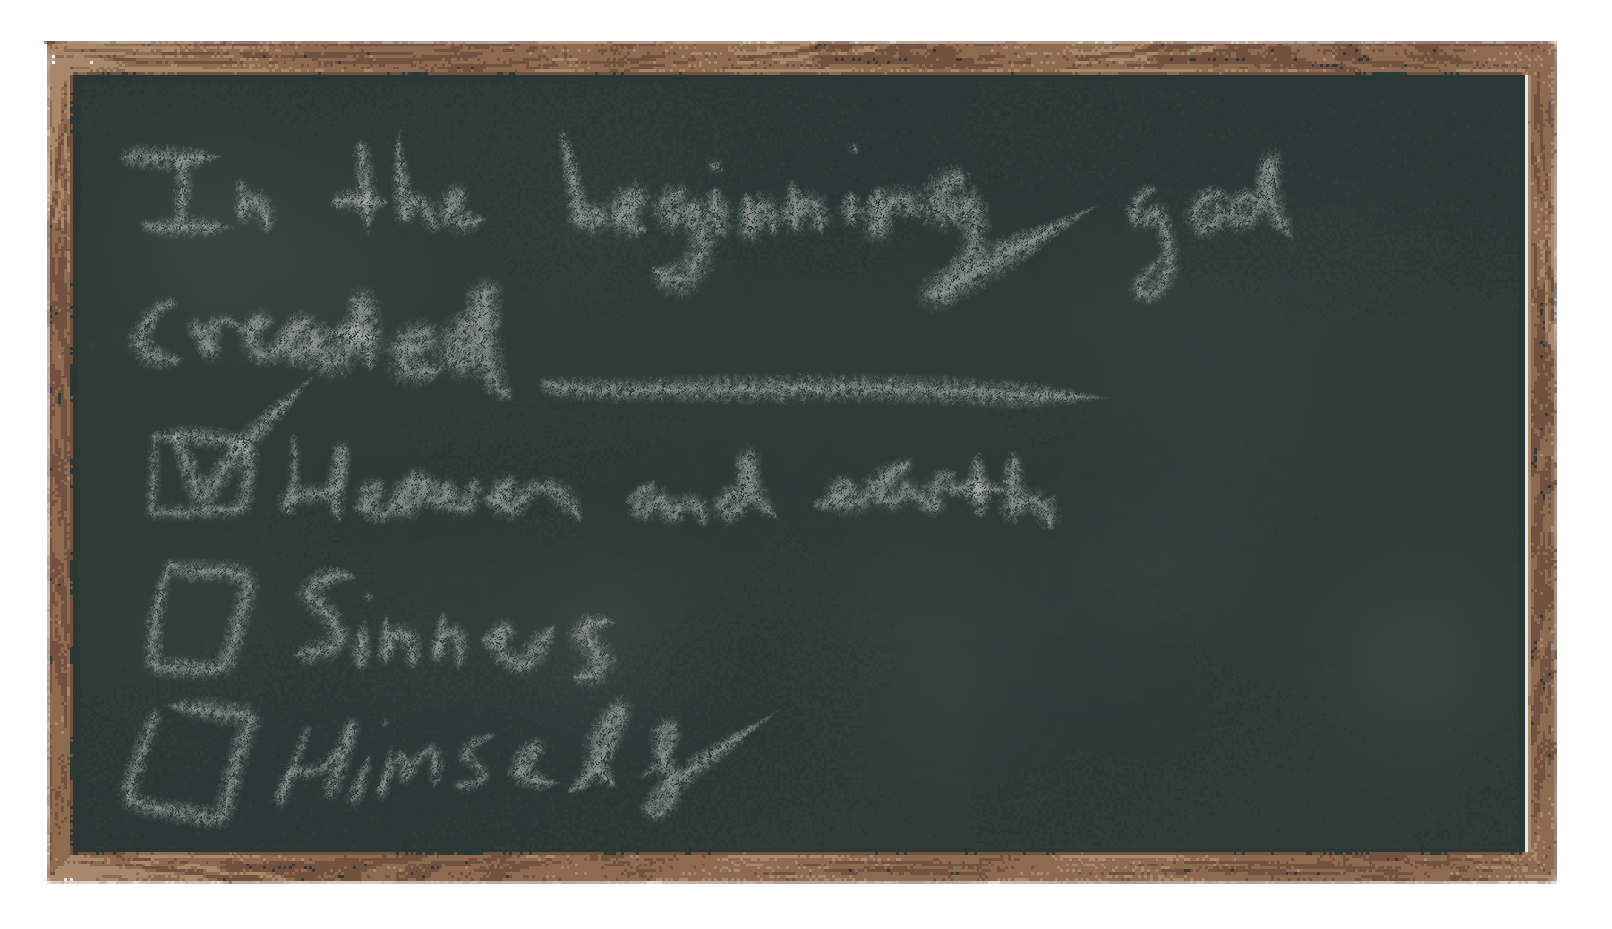 In the beginning god
created
Heaven and earth
Sinners
Himself